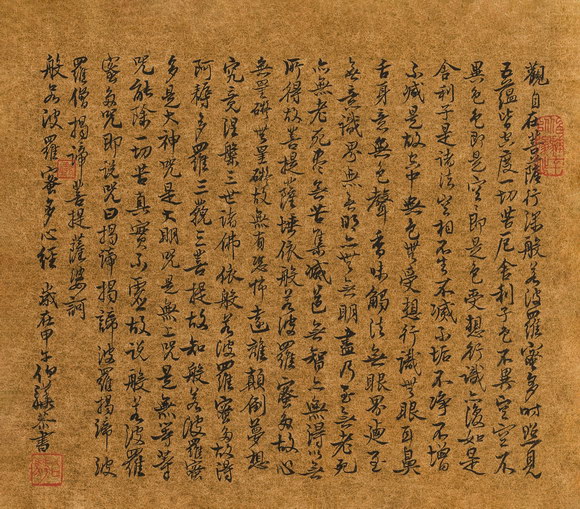 觀自在菩薩行深般若波羅蜜多時照見
五蘊皆空度一切苦厄舍利子色不異空空不
異色色即是空即是色受想行識亦復如是
舍利子是諸法空相不生不滅不垢不淨不增
不減是故空中無色無受想行識無眼耳鼻
舌身意無色聲香味觸法無眼界迺至
無意識界無無明亦無無明盡乃至無老死
亦無老死盡無苦集滅道無智亦無得以無
所得故菩提薩埵依般若波羅蜜多故心
無罣礙無罣礙故無有恐怖遠離顛倒夢想
究竟涅槃三世諸佛依般若波羅蜜多故得
阿耨多羅三藐三菩提故知般若波羅蜜
多是大神咒是大明咒是無上咒是無等等
咒能除一切苦真實不虛故說般若波羅
蜜多咒即說咒曰揭諦揭諦波羅揭諦波
羅僧揭諦菩提薩婆訶
般若波羅蜜多心經 歲在甲午 書